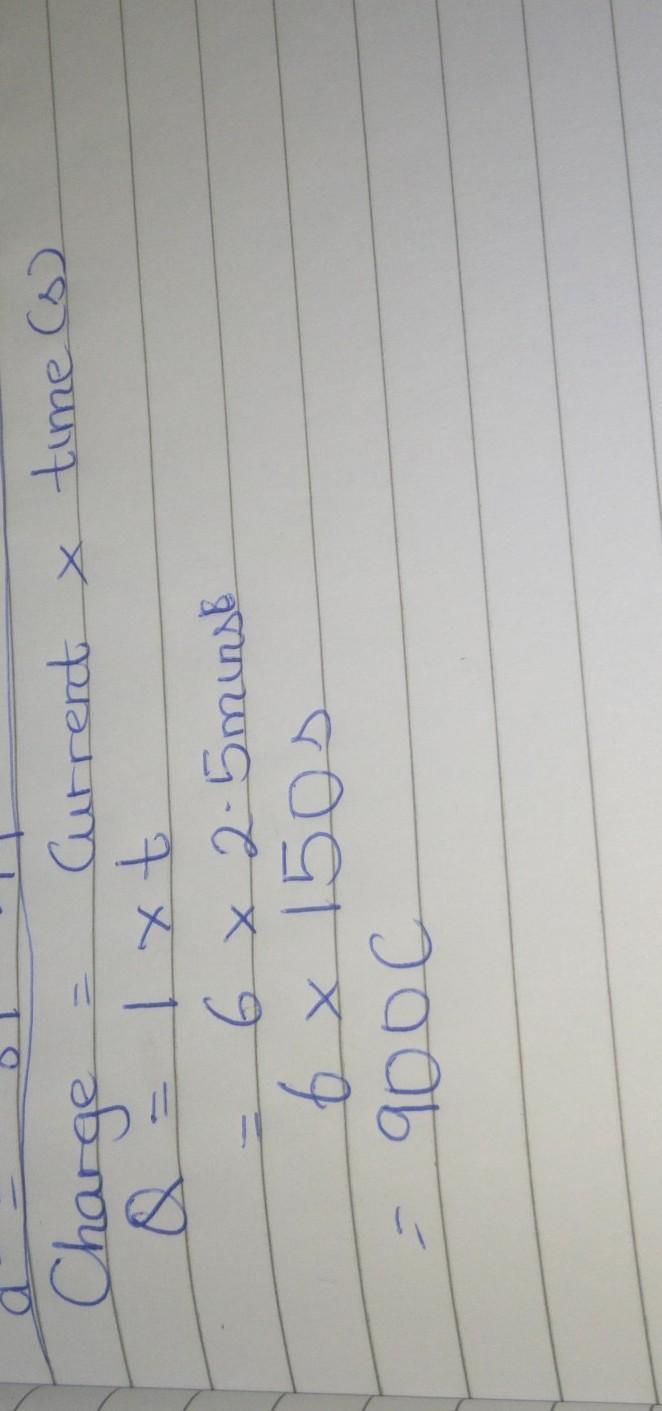 Charge = Current x time (s)
Q = I x t
= 6 x 2.5mins
6 x 150s
= 900C